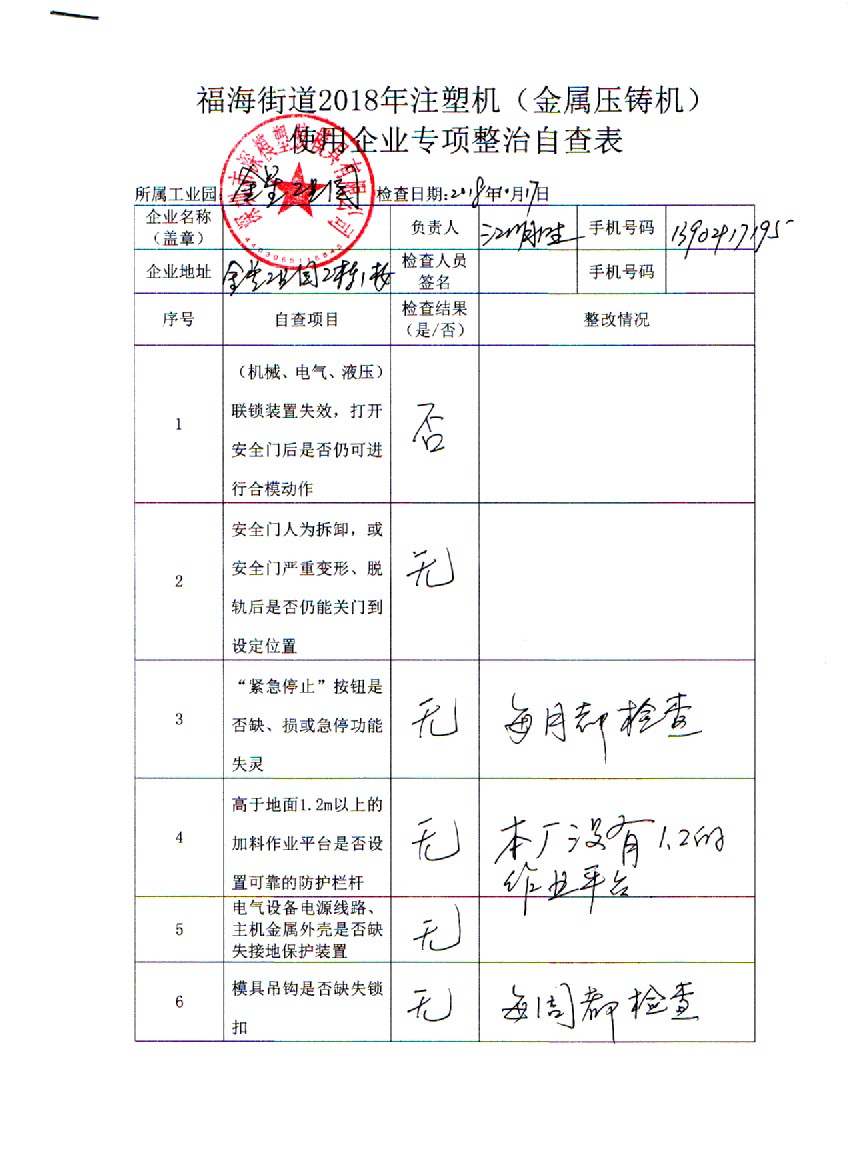 福海街道2018年注塑机（金属压铸机）
使用企业专项整治自查表
所属工业园: 检查日期:2018年10月17日
企业名称（盖章） 负责人 手机号码
企业地址 检查人员签名 手机号码
序号 自查项目 检查结果（是/否） 整改情况
1 （机械、电气、液压）
联锁装置失效，打开
安全门后是否仍可进
行合模动作
否
2 安全门人为拆卸，或
安全门严重变形、脱
轨后是否仍能关门到
设定位置
无
3 “紧急停止”按钮是
否缺、损或急停功能
失灵
无 每月都检查
4 高于地面1.2m以上的
加料作业平台是否设
置可靠的防护栏杆
无 本厂没有1.2的
作业平台
5 电气设备电源线路、
主机金属外壳是否缺
失接地保护装置
无
6 模具吊钩是否缺失锁
扣
无 每周都检查